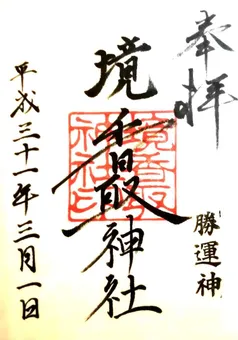 奉拝
勝運神
境香取神社
境香取
神社印
平成三十一年三月一日